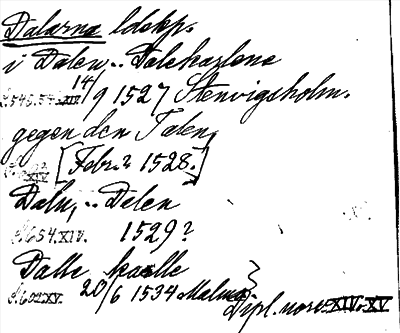 Dalarna ldskp.
i Dalen.. Dalekarlene
S.540.54.XIV. 14/9 1527 Stenvigsholm.
gegen den Dalen
XIV [Febr.? 1528.]
Daln, .. Delen
S.654.XIV. 1529?
Dalle kaelle
XV. 20/6 1534 Malmø} Dipl. norv. XIV. XV